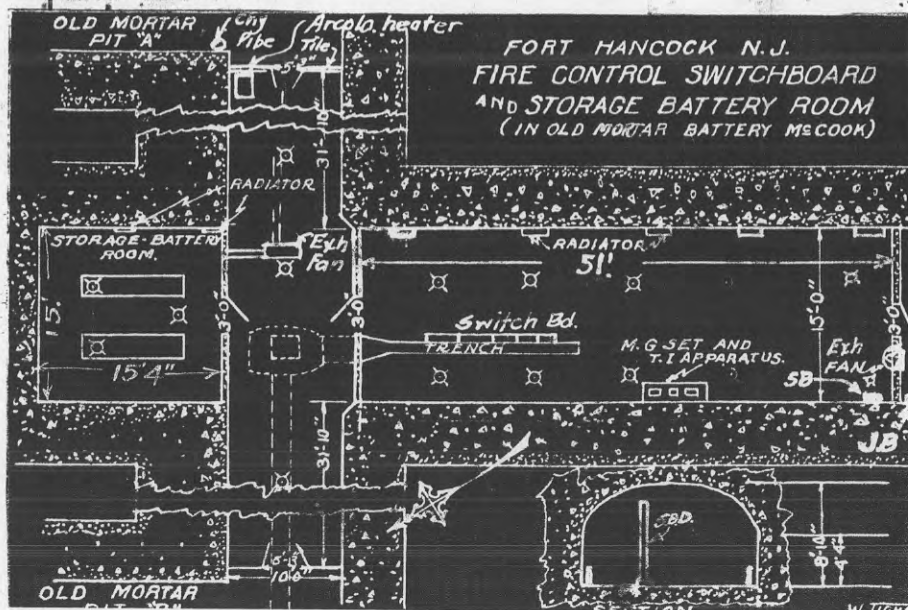 OLD MORTAR
PIT "A"
Chy
Pibe
Arcolo. heater
Tile
5'-3"
FORT HANCOCK N.J.
FIRE CONTROL SWITCHBOARD
AND STORAGE BATTERY ROOM
(IN OLD MORTAR BATTERY McCOOK)
31'-10"
RADIATOR
STORAGE-BATTERY
ROOM.
Exh
Fan
RADIATOR
51'
15'
15'4"
3'-0"
3'-0"
Switch Bd.
TRENCH
M.G SET AND
T.I APPARATUS.
15'-0"
3'-0"
Exh
FAN
SB
JB
31'-10"
10'0"
SBD.
8'-10"
4'4"
OLD MORTAR
PIT "B"
SECTION